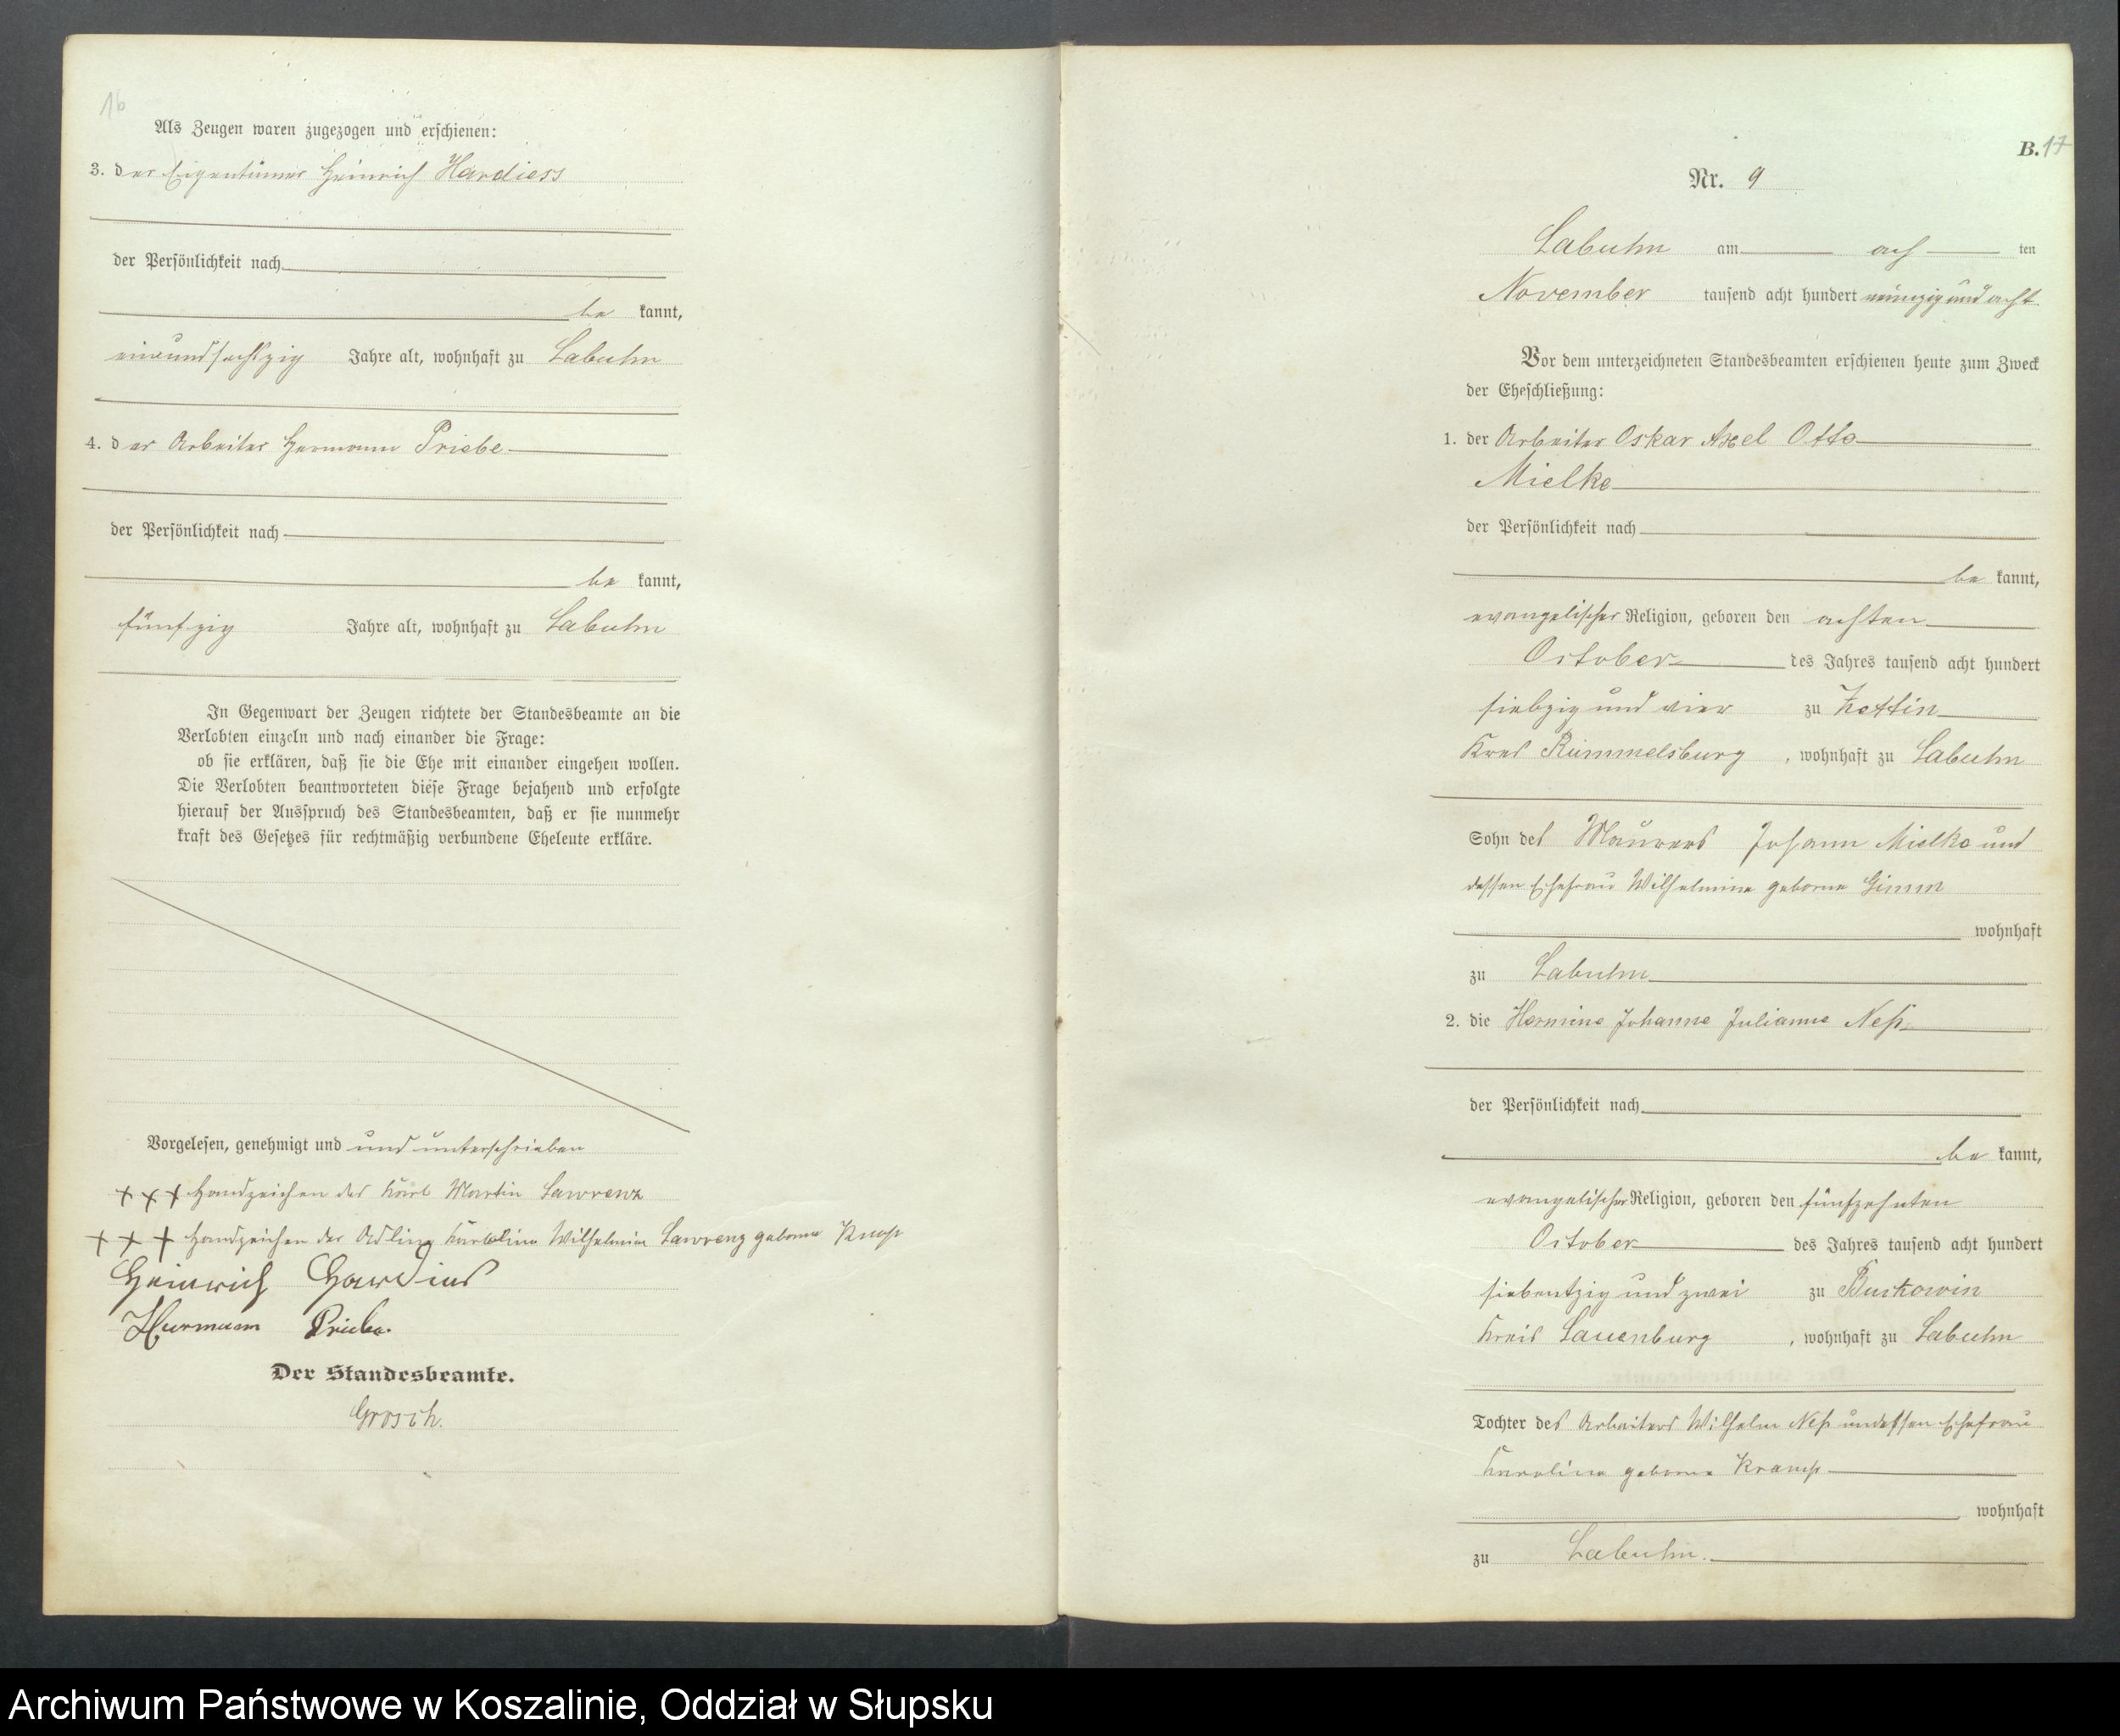 16
Als Zeugen waren zugezogen und erschienen:
3. der Eigentümer Heinrich Hardiess
der Persönlichkeit nach
be kannt,
einundsechszig Jahre alt, wohnhaft zu Labuhn
4. der Arbeiter Hermann Priebe
der Persönlichkeit nach
be kannt,
fünfzig Jahre alt, wohnhaft zu Labuhn
In Gegenwart der Zeugen richtete der Standesbeamte an die
Verlobten einzeln und nach einander die Frage:
ob sie erklären, daß sie die Ehe mit einander eingehen wollen.
Die Verlobten beantworteten diese Frage bejahend und erfolgte
hierauf der Ausspruch des Standesbeamten, daß er sie nunmehr
kraft des Gesetzes für rechtmäßig verbundene Eheleute erkläre.
Vorgelesen, genehmigt und und unterschrieben
+++ Handzeichen des Karl Martin Lawrenz
+++ Handzeichen der Karoline Wilhelmine Lawrenz geborne
Heinrich Hardies
Hermann Priebe.
Der Standesbeamte.
Grosch.
B. 17
Nr. 9
Labuhn am ach ten
November tausend acht hundert neunzig und acht
Vor dem unterzeichneten Standesbeamten erschienen heute zum Zweck
der Eheschließung:
1. der Arbeiter Oskar Axel Otto
Mielke
der Persönlichkeit nach
be kannt,
evangelischer Religion, geboren den achten
October des Jahres tausend acht hundert
siebzig und vier zu Zettin
Kreis Rummelsburg, wohnhaft zu Labuhn
Sohn des Maurers Johann Mielke und
dessen Ehefrau Wilhelmine geborne Gimm
wohnhaft
zu Labuhn
2. die Hermine Johanne Julianne Neß
der Persönlichkeit nach
be kannt,
evangelischer Religion, geboren den fünfzehnten
October des Jahres tausend acht hundert
siebentzig und zwei zu Buckowin
Kreis Lauenburg, wohnhaft zu Labuhn
Tochter des Arbeiters Wilhelm Neß undessen Ehefrau
Karoline geborne Kramp
wohnhaft
zu Labuhn.
Archiwum Państwowe w Koszalinie, Oddział w Słupsku